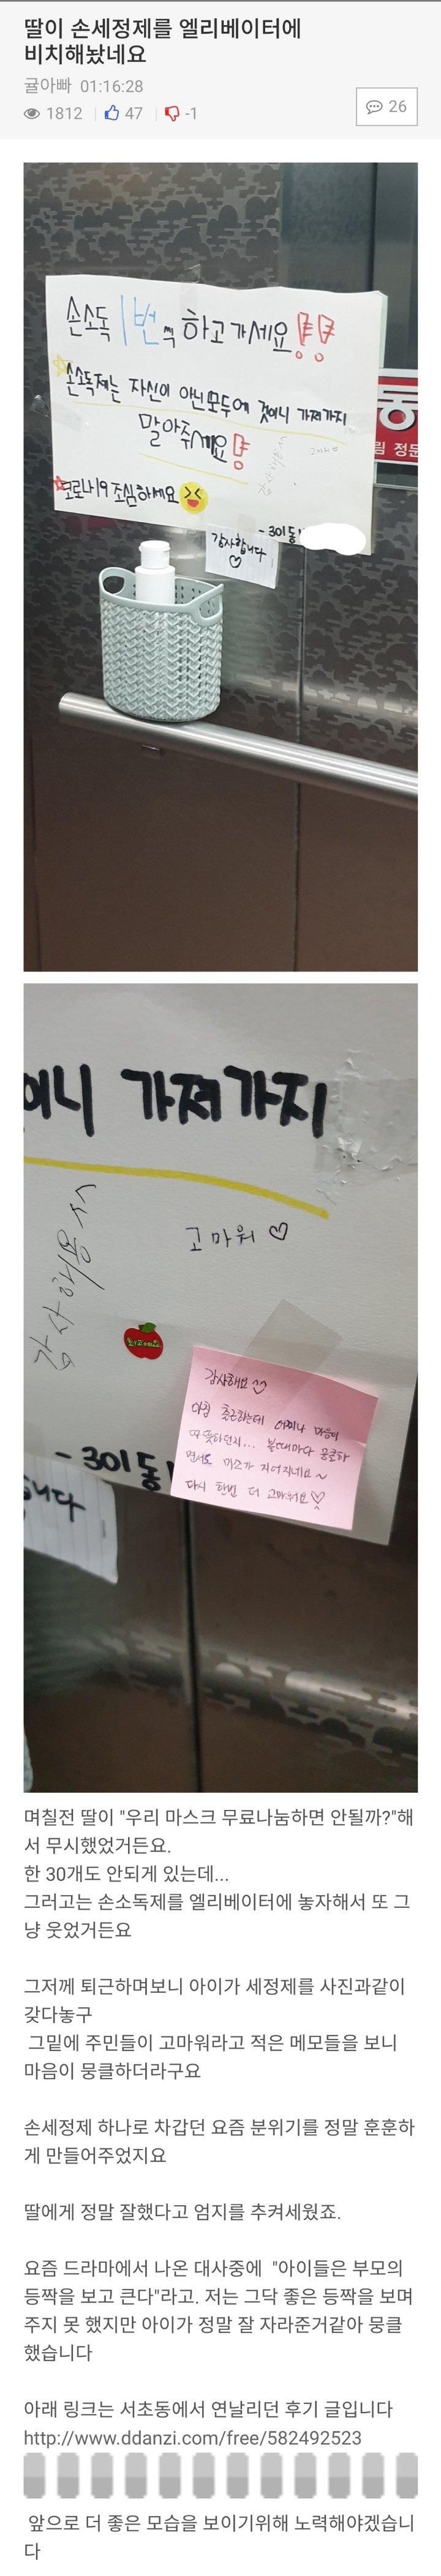 딸이 손세정제를 엘리베이터에
비치해놨네요
귤아빠 01:16:28
1812 47 -1
26
손소독 1번씩 하고가세요!!
손소독제는 자신이 아닌모두에 것이니 가져가지
말아주세요!
코로나19 조심하세요
-301동
감사합니다
림 정문
이니 가져가지
고마워
감사해용^^
-301동
니다
감사해요
아침 출근하는데 어찌나 마음이
따뜻하던지... 볼때마다 뭉클하
면서도 미소가 지어지네요~
다시 한번 더 고마워요
며칠전 딸이 "우리 마스크 무료나눔하면 안될까?"해
서 무시했었거든요.
한 30개도 안되게 있는데...
그러고는 손소독제를 엘리베이터에 놓자해서 또 그
냥 웃었거든요
그저께 퇴근하며보니 아이가 세정제를 사진과같이
갖다놓구
그밑에 주민들이 고마워라고 적은 메모들을 보니
마음이 뭉클하더라구요
손세정제 하나로 차갑던 요즘 분위기를 정말 훈훈하
게 만들어주었지요
딸에게 정말 잘했다고 엄지를 추켜세웠죠.
요즘 드라마에서 나온 대사중에 "아이들은 부모의
등짝을 보고 큰다"라고. 저는 그닥 좋은 등짝을 보며
주지 못 했지만 아이가 정말 잘 자라준거같아 뭉클
했습니다
아래 링크는 서초동에서 연날리던 후기 글입니다
http://www.ddanzi.com/free/582492523
앞으로 더 좋은 모습을 보이기위해 노력해야겠습니
다